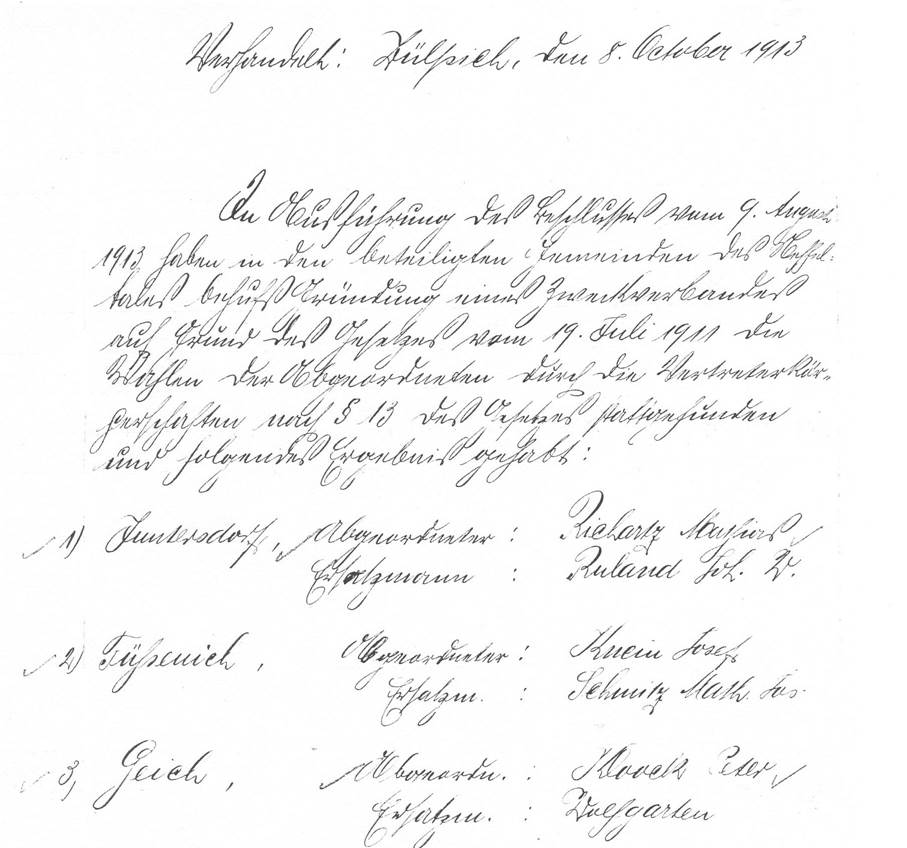 Verhandelt: Zülpich, den 8. October 1913
In Ausführung des Beschlusses vom 9. August
1913 haben in den beteiligten Gemeinden des Neffel-
tales behufs Gründung eines Zweckverbandes
auf Grund des Gesetzes vom 19. Juli 1911 die
Wahlen der Abgeordneten durch die Vertreterkör-
perschaften nach § 13 des Gesetzes stattgefunden
und folgendes Ergebnis gehabt:
1) Juntersdorf, Abgeordneter: Richartz Mathias
Ersatzmann : Ruland Joh. W.
2) Füssenich, Abgeordneter: Knein Josef
Ersatzm. : Schmitz Math. Jos.
3, Geich, Abgeordn. : Kloock Peter
Ersatzm. : Wolfgarten